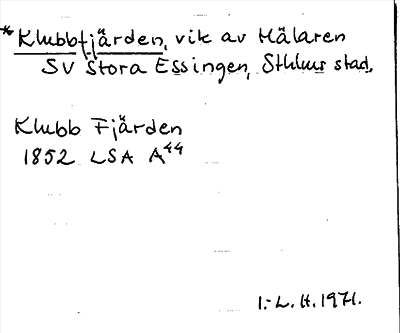 *Klubbfjärden, vik av Mälaren
SV Stora Essingen, Sthlms stad.
Klubb Fjärden
1852 LSA A44
I.-L. H. 1971.